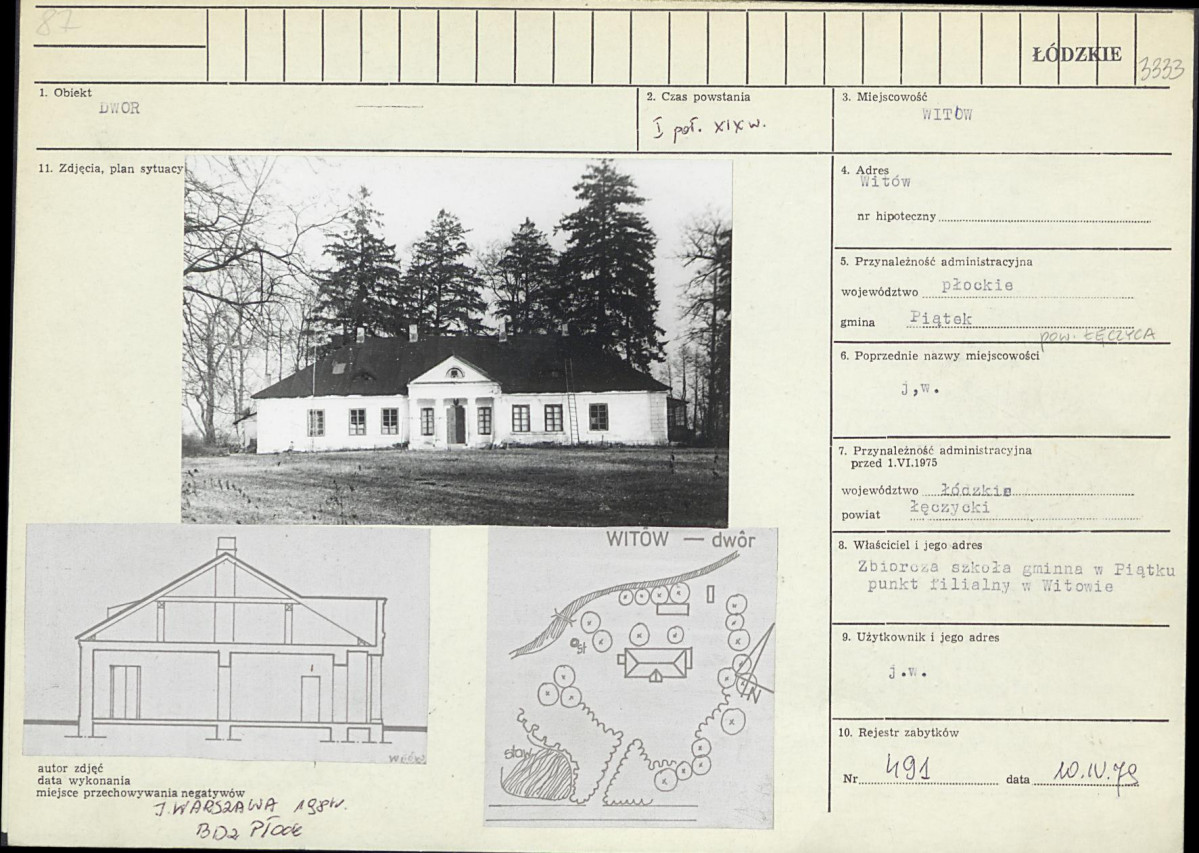 87
ŁÓDZKIE
3333
1. Obiekt
DWOR
2. Czas powstania
I poł. XIX w.
3. Miejscowość
WITÓW
11. Zdjęcia, plan sytuacy
4. Adres
Witów
nr hipoteczny
5. Przynależność administracyjna
województwo płockie
gmina Piątek
pow. ŁĘCZYCA
6. Poprzednie nazwy miejscowości
j,w.
7. Przynależność administracyjna
przed 1.VI.1975
województwo łódzkie
powiat łęczycki
8. Właściciel i jego adres
Zbiorcza szkoła gminna w Piątku
punkt filialny w Witowie
9. Użytkownik i jego adres
j.w.
10. Rejestr zabytków
Nr 491 data 10.IV.79
WITÓW — dwór
st
staw
N
autor zdjęć
data wykonania
miejsce przechowywania negatywów
J. WARSZAWA
BDZ Płock